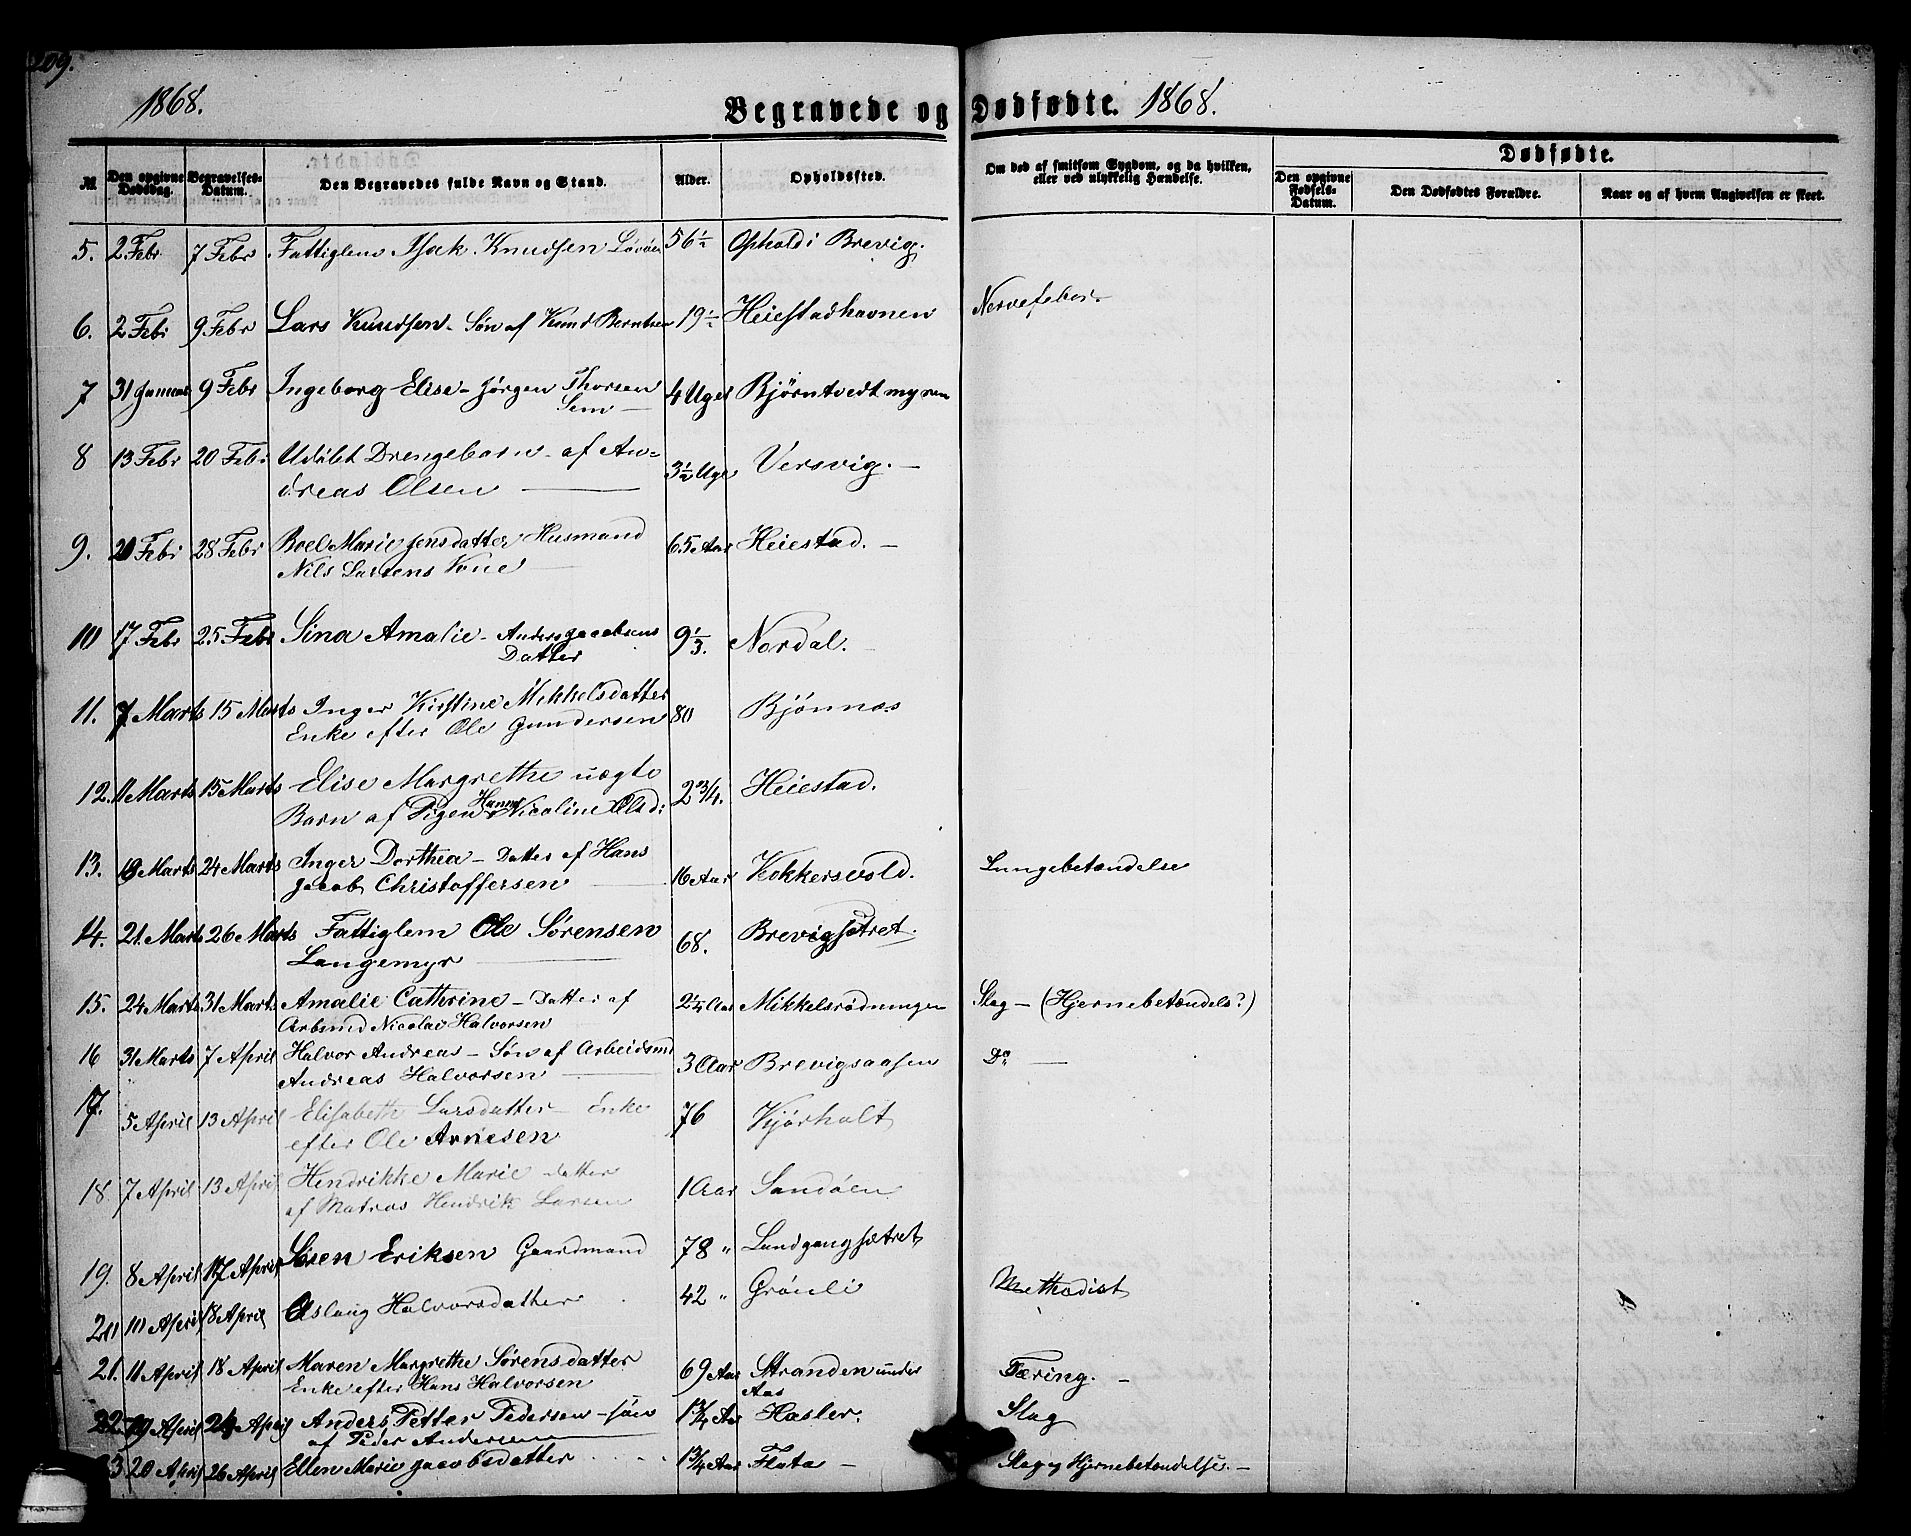 209.
1868.
Begravede og Dødfødte. 1868.
№
Den opgivne Dødsdag.
Begravelses-Datum.
Den Begravedes fulde Navn og Stand.
Alder.
Opholdssted.
Om død af smitsom Sygdom, og da hvilken, eller ved ulykkelig Hændelse.
Dødfødte.
Den opgivne Fødsels-Datum.
Den Dødfødtes Forældre.
Naar og af hvem Angivelsen er skeet.
5. 2 Febr 7 Febr Fattiglem Isak Knudsen Løvøen 56½ Ophold i Brevig.
6. 2 Febr 9 Febr Lars Knudsen - Søn af Knud Berntsen 19½ Heiestadhavnen Nervefeber.
7 31 Januar 9 Febr Ingeborg Elise - Jørgen Thorsen 4 Uger Bjørntvedtmyren
Sem —
8 13 Febr 20 Febr Udøbt Drengebarn - af An-
dreas Olsen — 3½ Uge Versvig. —
9. 20 Febr 28 Febr Boel Marie Jensdatter Husmand 65 Aar Heiestad. —
Nils Larsens Kone —
10 17 Febr 25 Febr Sina Amalie - Anders Jacobsens 9⅓. Nordal. —
Datter
11. 7 Marts 15 Marts Inger Kirstine Mikkelsdatter 80 Bjønnes
Enke efter Ole Gundersen
12. 11 Marts 15 Marts Elise Margrethe uægte 2¾. Heiestad.
Barn af Pigen Hanna Nicoline Olsd:
13. 19 Marts 24 Marts Inger Dorthea - Datter af Hans
Jacob Christoffersen — 16 Aar Kokkersvold. Lungebetændelse
14. 21 Marts 26 Marts Fattiglem Ole Sørensen 68. Brevigsætret.
Langemyr —
15. 24 Marts 31 Marts Amalie Cathrine - Datter af 2¼ Aar Mikkelsrødningen Slag - (Hjernebetændels?)
Arbmd Nicolai Halvorsen
16 31 Marts 7 April Halvor Andreas - Søn af Arbeidsmd 3 Aar Brevigsaasen Do —
Andreas Halvorsen —
17. 5 April 13 April Elisabeth Larsdatter - Enke 76 Kjørholt
efter Ole Arnesen
18. 7 April 13 April Hendrikke Marie - datter 1 Aar Sandøen
af Matros Hendrik Larsen
19. 8 April 17 April Søren Eriksen Gaardmand 78 " Lundgangsætret
20 10 April 18 April Aslaug Halvorsdatter 42 " Grønli Methodist
21. 11 April 18 April Maren Margrethe Sørensdatter 69 Aar Stranden under Tæring. —
Enke efter Hans Halvorsen Aas
22. 19 April 24 April Anders Petter Pedersen - søn 1¾ Aar Hasler. Slag
af Peder Andersen
23 20 April 26 April Ellen Marie Jacobsdatter 1¾ Aar Flata — Slag og Hjernebetændelse. —